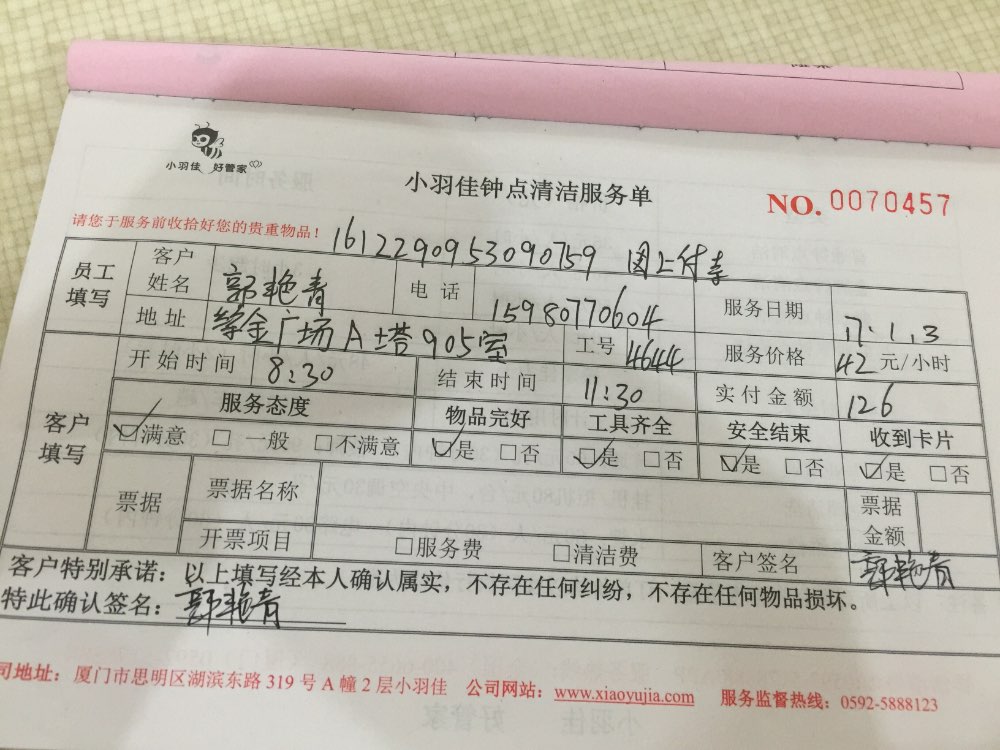 小羽佳 好管家
小羽佳钟点清洁服务单
NO. 0070457
请您于服务前收拾好您的贵重物品!
1612290953090759 网上付款
员工填写 客户姓名 郭艳青 电话 15980770604 服务日期 17.1.3
地址 金广场A塔905室 工号 4644 服务价格 42 元/小时
客户填写 开始时间 8:30 结束时间 11:30 实付金额 126
服务态度 物品完好 工具齐全 安全结束 收到卡片
☑满意 □一般 □不满意 ☑是 □否 ☑是 □否 ☑是 □否 ☑是 □否
票据 票据名称 票据金额
开票项目 □服务费 □清洁费 客户签名 郭艳青
客户特别承诺:以上填写经本人确认属实,不存在任何纠纷,不存在任何物品损坏。
特此确认签名:郭艳青
司地址:厦门市思明区湖滨东路 319 号 A 幢 2 层小羽佳 公司网站:www.xiaoyujia.com 服务监督热线:0592-5888123